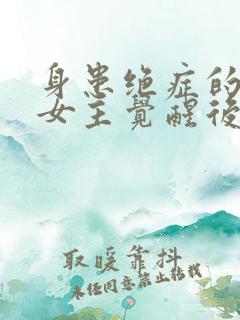 身患绝症的
女主覺醒後
取暖靠抖
未经同意禁止转载